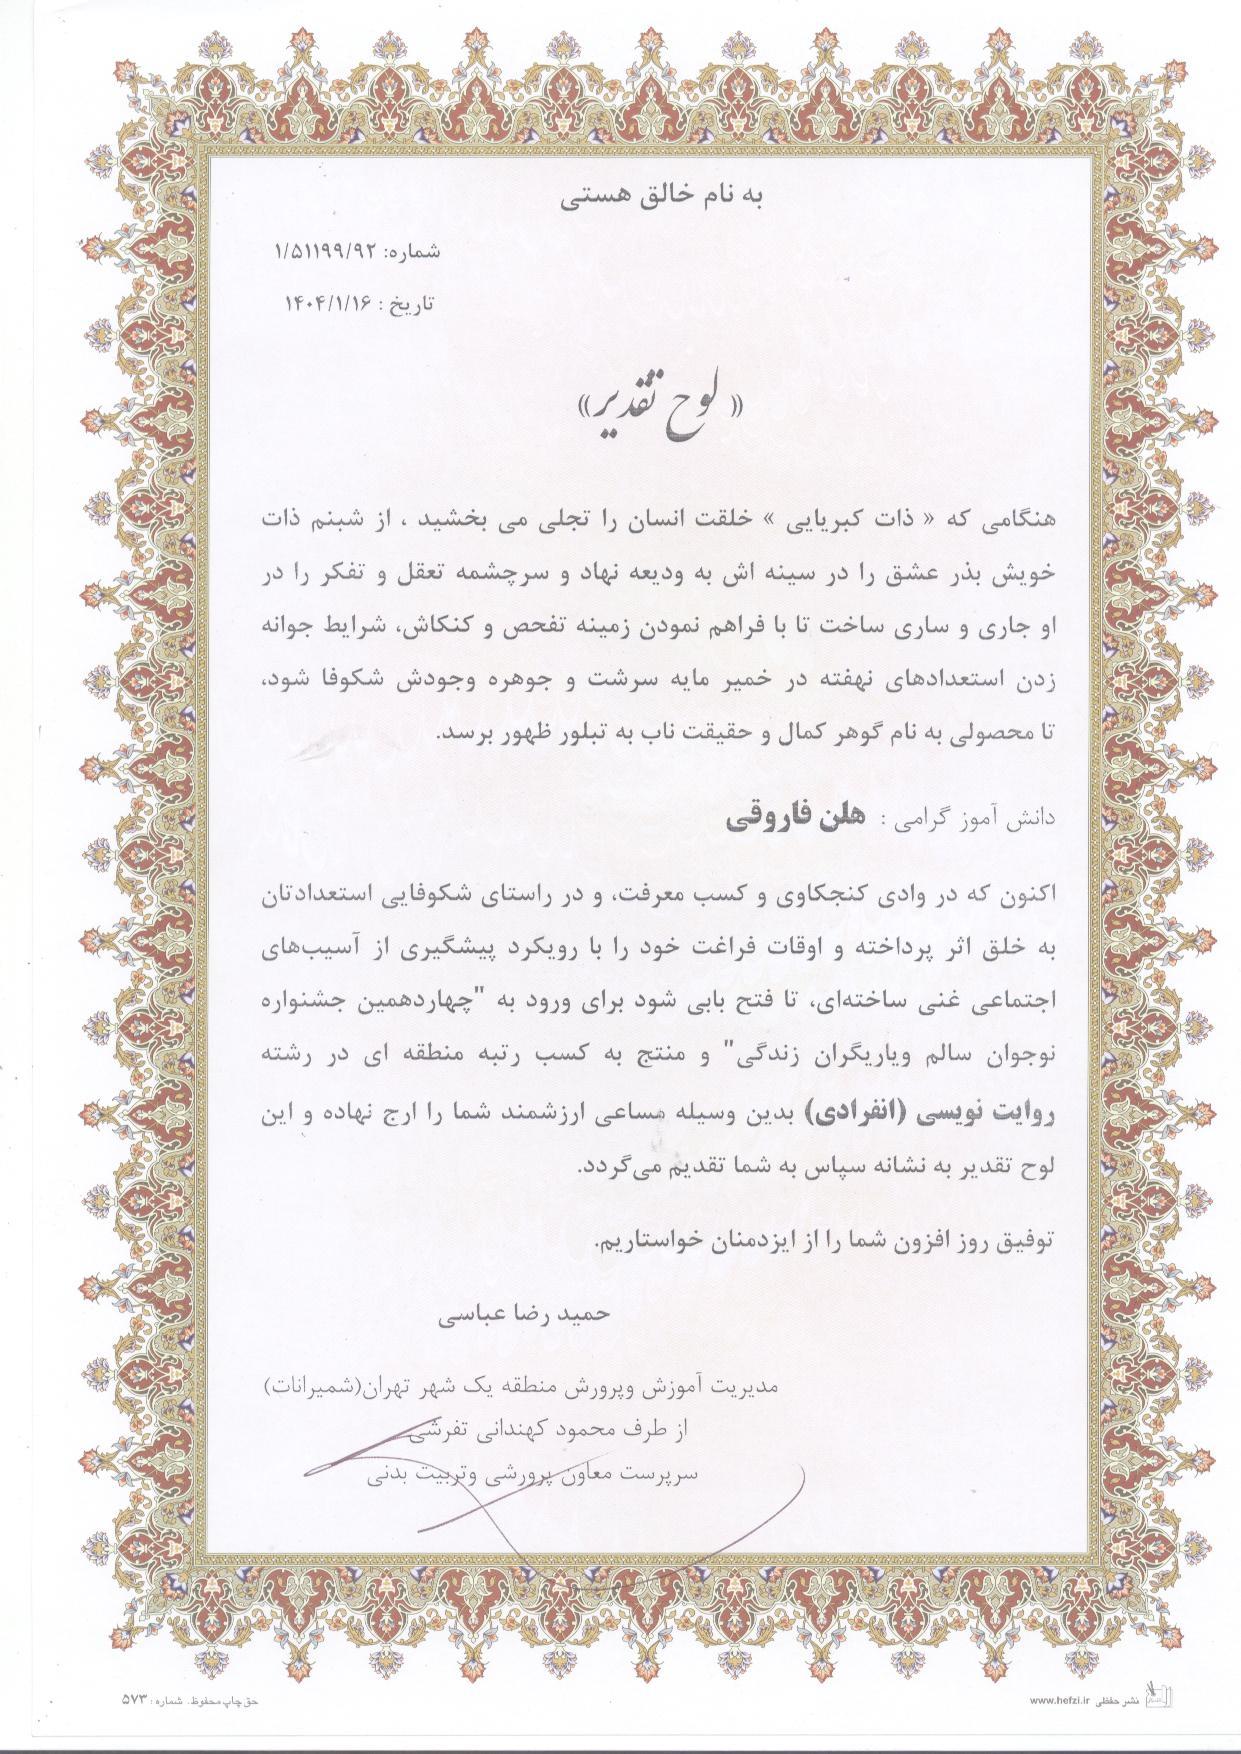 به نام خالق هستی
شماره: ۱/۵۱۱۹۹/۹۲
تاریخ : ۱۴۰۴/۱/۱۶
« لوح تقدیر»
هنگامی که « ذات کبریایی » خلقت انسان را تجلی می بخشید ، از شبنم ذات
خویش بذر عشق را در سینه اش به ودیعه نهاد و سرچشمه تعقل و تفکر را در
او جاری و ساری ساخت تا با فراهم نمودن زمینه تفحص و کنکاش، شرایط جوانه
زدن استعدادهای نهفته در خمیر مایه سرشت و جوهره وجودش شکوفا شود،
تا محصولی به نام گوهر کمال و حقیقت ناب به تبلور ظهور برسد.
دانش آموز گرامی : هلن فاروقی
اکنون که در وادی کنجکاوی و کسب معرفت، و در راستای شکوفایی استعدادتان
به خلق اثر پرداخته و اوقات فراغت خود را با رویکرد پیشگیری از آسیب‌های
اجتماعی غنی ساخته‌ای، تا فتح بابی شود برای ورود به "چهاردهمین جشنواره
نوجوان سالم ویاریگران زندگی" و منتج به کسب رتبه منطقه ای در رشته
روایت نویسی (انفرادی) بدین وسیله مساعی ارزشمند شما را ارج نهاده و این
لوح تقدیر به نشانه سپاس به شما تقدیم می‌گردد.
توفیق روز افزون شما را از ایزدمنان خواستاریم.
حمید رضا عباسی
مدیریت آموزش وپرورش منطقه یک شهر تهران(شمیرانات)
از طرف محمود کهندانی تفرشی
سرپرست معاون پرورشی وتربیت بدنی
نشر حفظی www.hefzi.ir
حق چاپ محفوظ. شماره : ۵۷۳